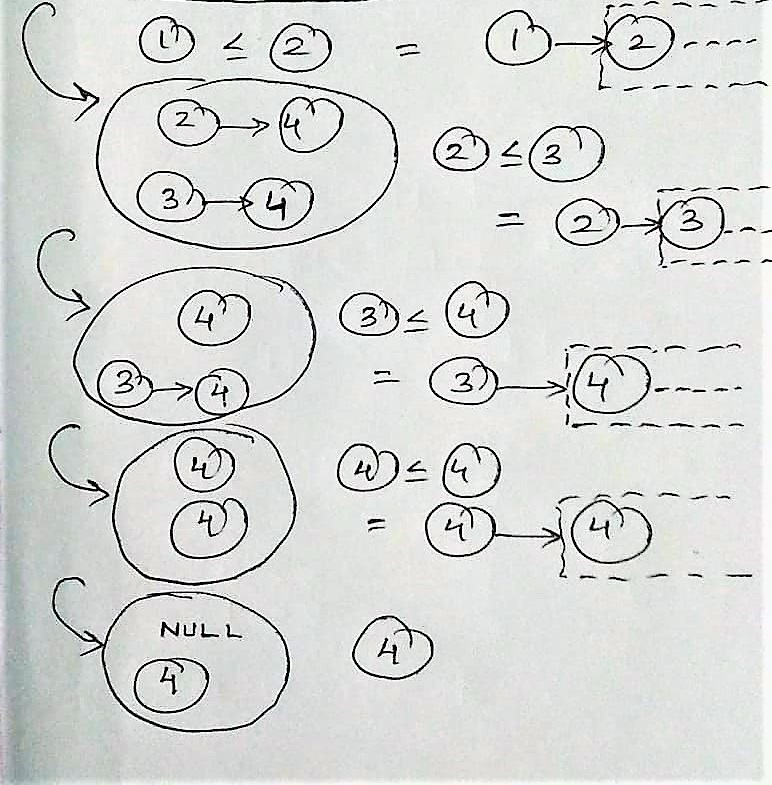 1 ≤ 2 = 1 → 2
2 → 4
2 ≤ 3
3 → 4
= 2 → 3
4
3 ≤ 4
3 → 4
= 3 → 4
4
4 ≤ 4
4
= 4 → 4
NULL
4
4